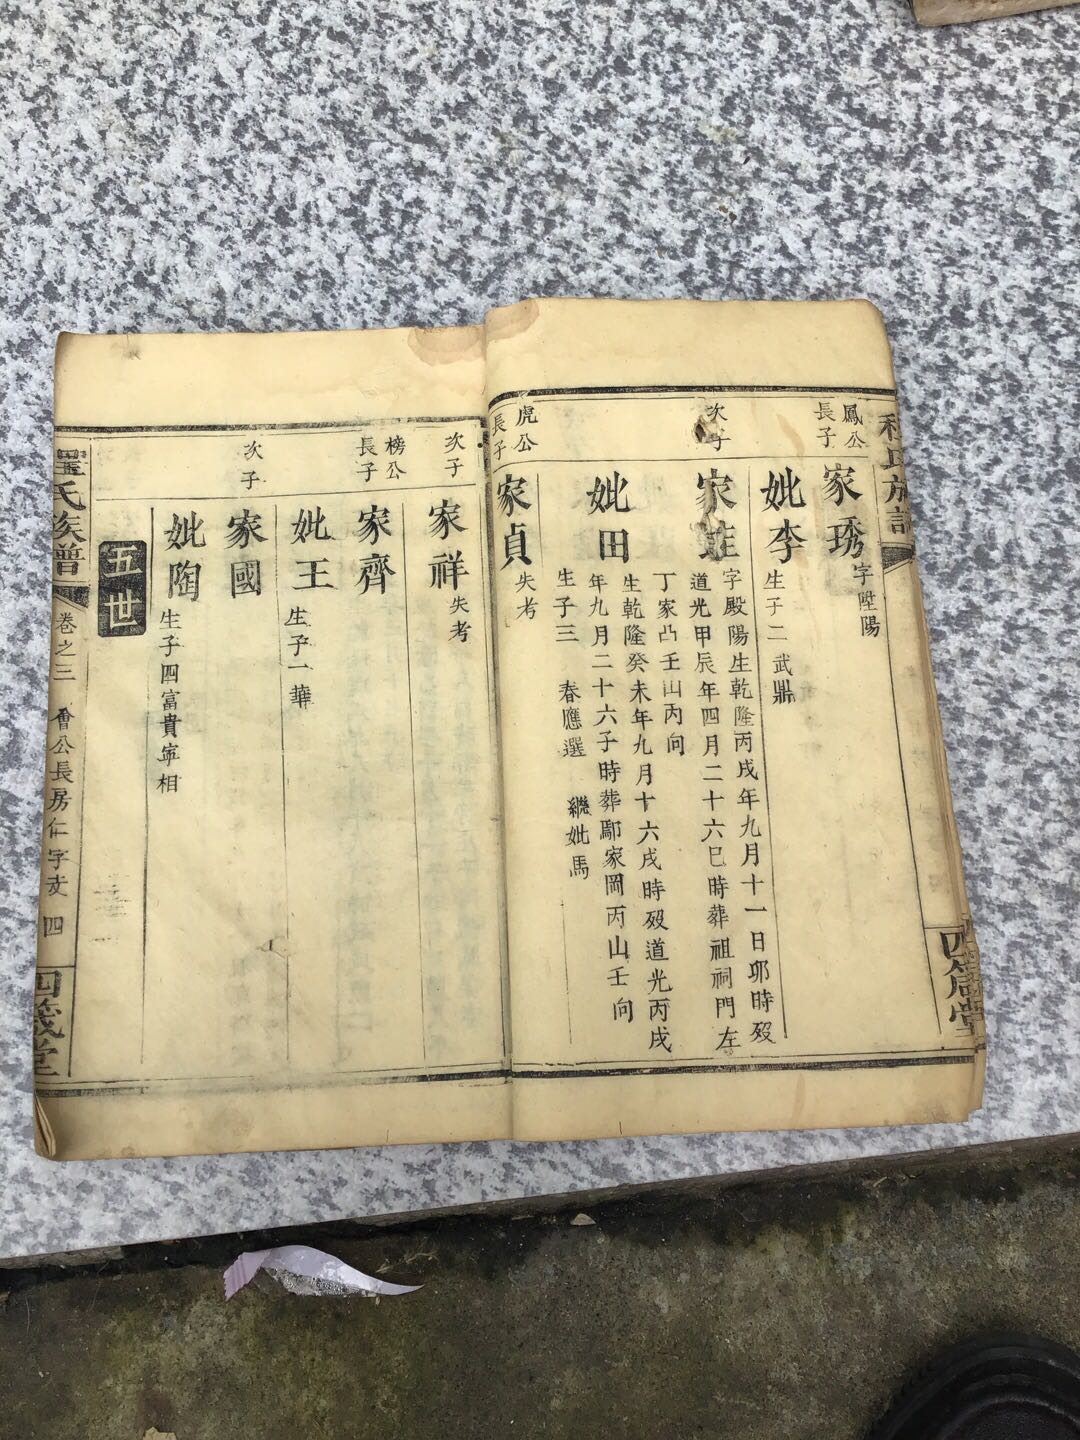 鳳公
長子
家琇
字陞陽
妣李
生子二 武鼎
次子
家
字殿陽生乾隆丙戌年九月十一日卯時歿
道光甲辰年四月二十六巳時葬祖祠門左
丁家凸壬山丙向
妣田
生乾隆癸未年九月十六戌時歿道光丙戌
年九月二十六子時葬鄢家岡丙山壬向
生子三 春應選 繼妣馬
虎公
長子
家貞
失考
次子
家祥
失考
榜公
長子
家齊
妣王
生子一華
次子
家國
妣陶
生子四富貴寧相
五世
程氏族譜
卷之三 會公長房仁字支 四
四箴堂